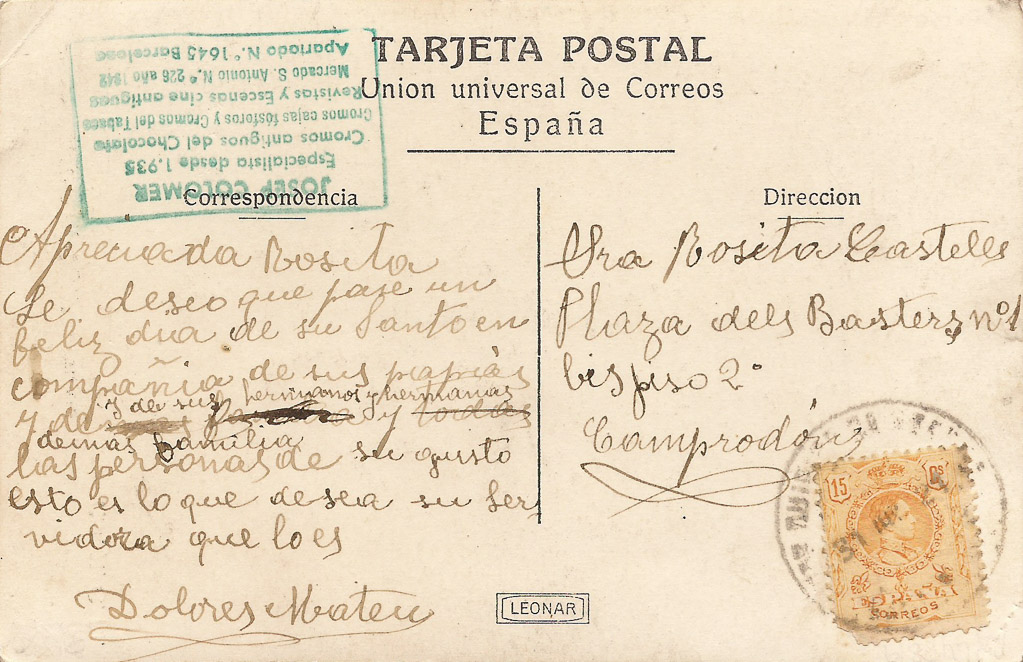 TARJETA POSTAL
Union universal de Correos
España
JOSEP COLOMER
Especialista desde 1.935
Cromos antiguos del Chocolate
Cromos cajas fósforos y Cromos del Tabaco
Revistas y Escenas cine antiguas
Mercado S. Antonio N.º 226 año 1942
Apartado N.º 1645 Barcelona
Correspondencia
Apreciada Rosita
Le deseo que pase un
feliz dia de su Santo en
compañia de sus papás
y de sus hermanos y hermanas
y de y todas
demás familia
las personas de su gusto
esto es lo que desea su ser
vidora que lo es
Dolores Mateu
Direccion
Sra Rosita Castells
Plaza dels Basters nº 1
bis piso 2º
Camprodón
15 CS
CORREOS
LEONAR